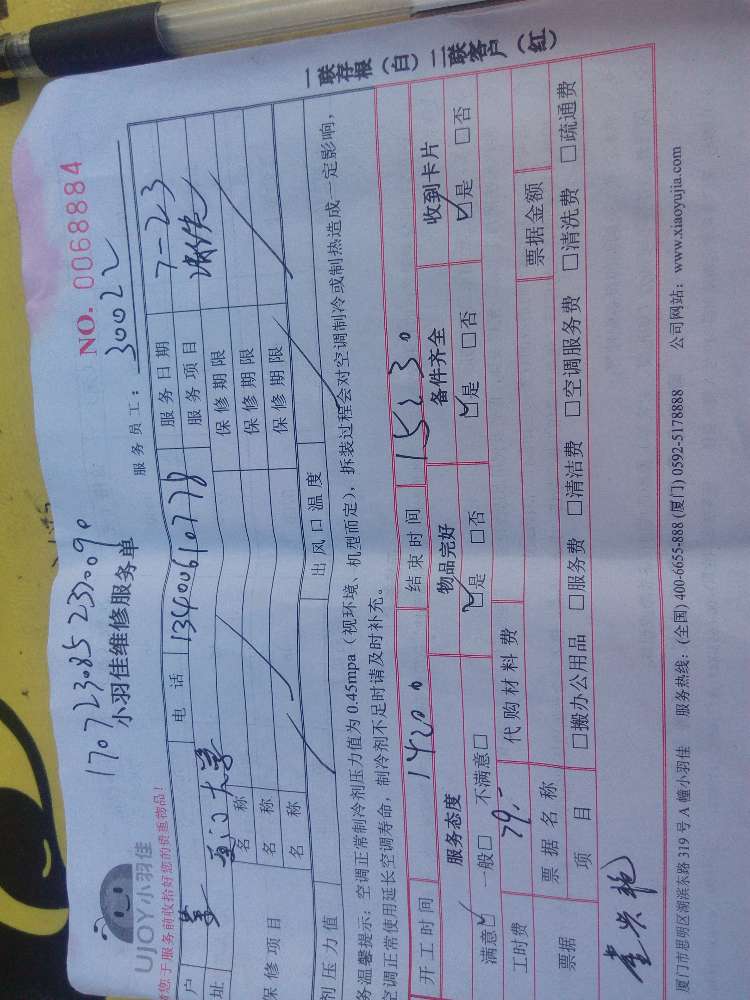 一联存根（白）二联客户（红）
UJOY小羽佳
NO. 0068884
小羽佳维修服务单
服务员工：30022
请您于服务前收拾好您的贵重物品！
户 电话 13400610778 服务日期 7-23
址 厦门大学 服务项目
保修项目 名称 保修期限
名称 保修期限
名称 保修期限
剂压力值 出风口温度
务温馨提示：空调正常制冷剂压力值为 0.45mpa（视环境、机型而定），拆装过程会对空调制冷或制热造成一定影响，
空调正常使用延长空调寿命，制冷剂不足时请及时补充。
开工时间 结束时间
服务态度 物品完好 备件齐全 收到卡片
满意☑ 一般□ 不满意□ ☑是 □否 ☑是 □否 ☑是 □否
工时费 79.- 代购材料费
票据 票据名称 票据金额
项目 □搬办公用品 □服务费 □清洁费 □空调服务费 □清洗费 □疏通费
厦门市思明区湖滨东路 319 号 A 幢小羽佳 服务热线：(全国) 400-6655-888 (厦门) 0592-5178888 公司网站：www.xiaoyujia.com